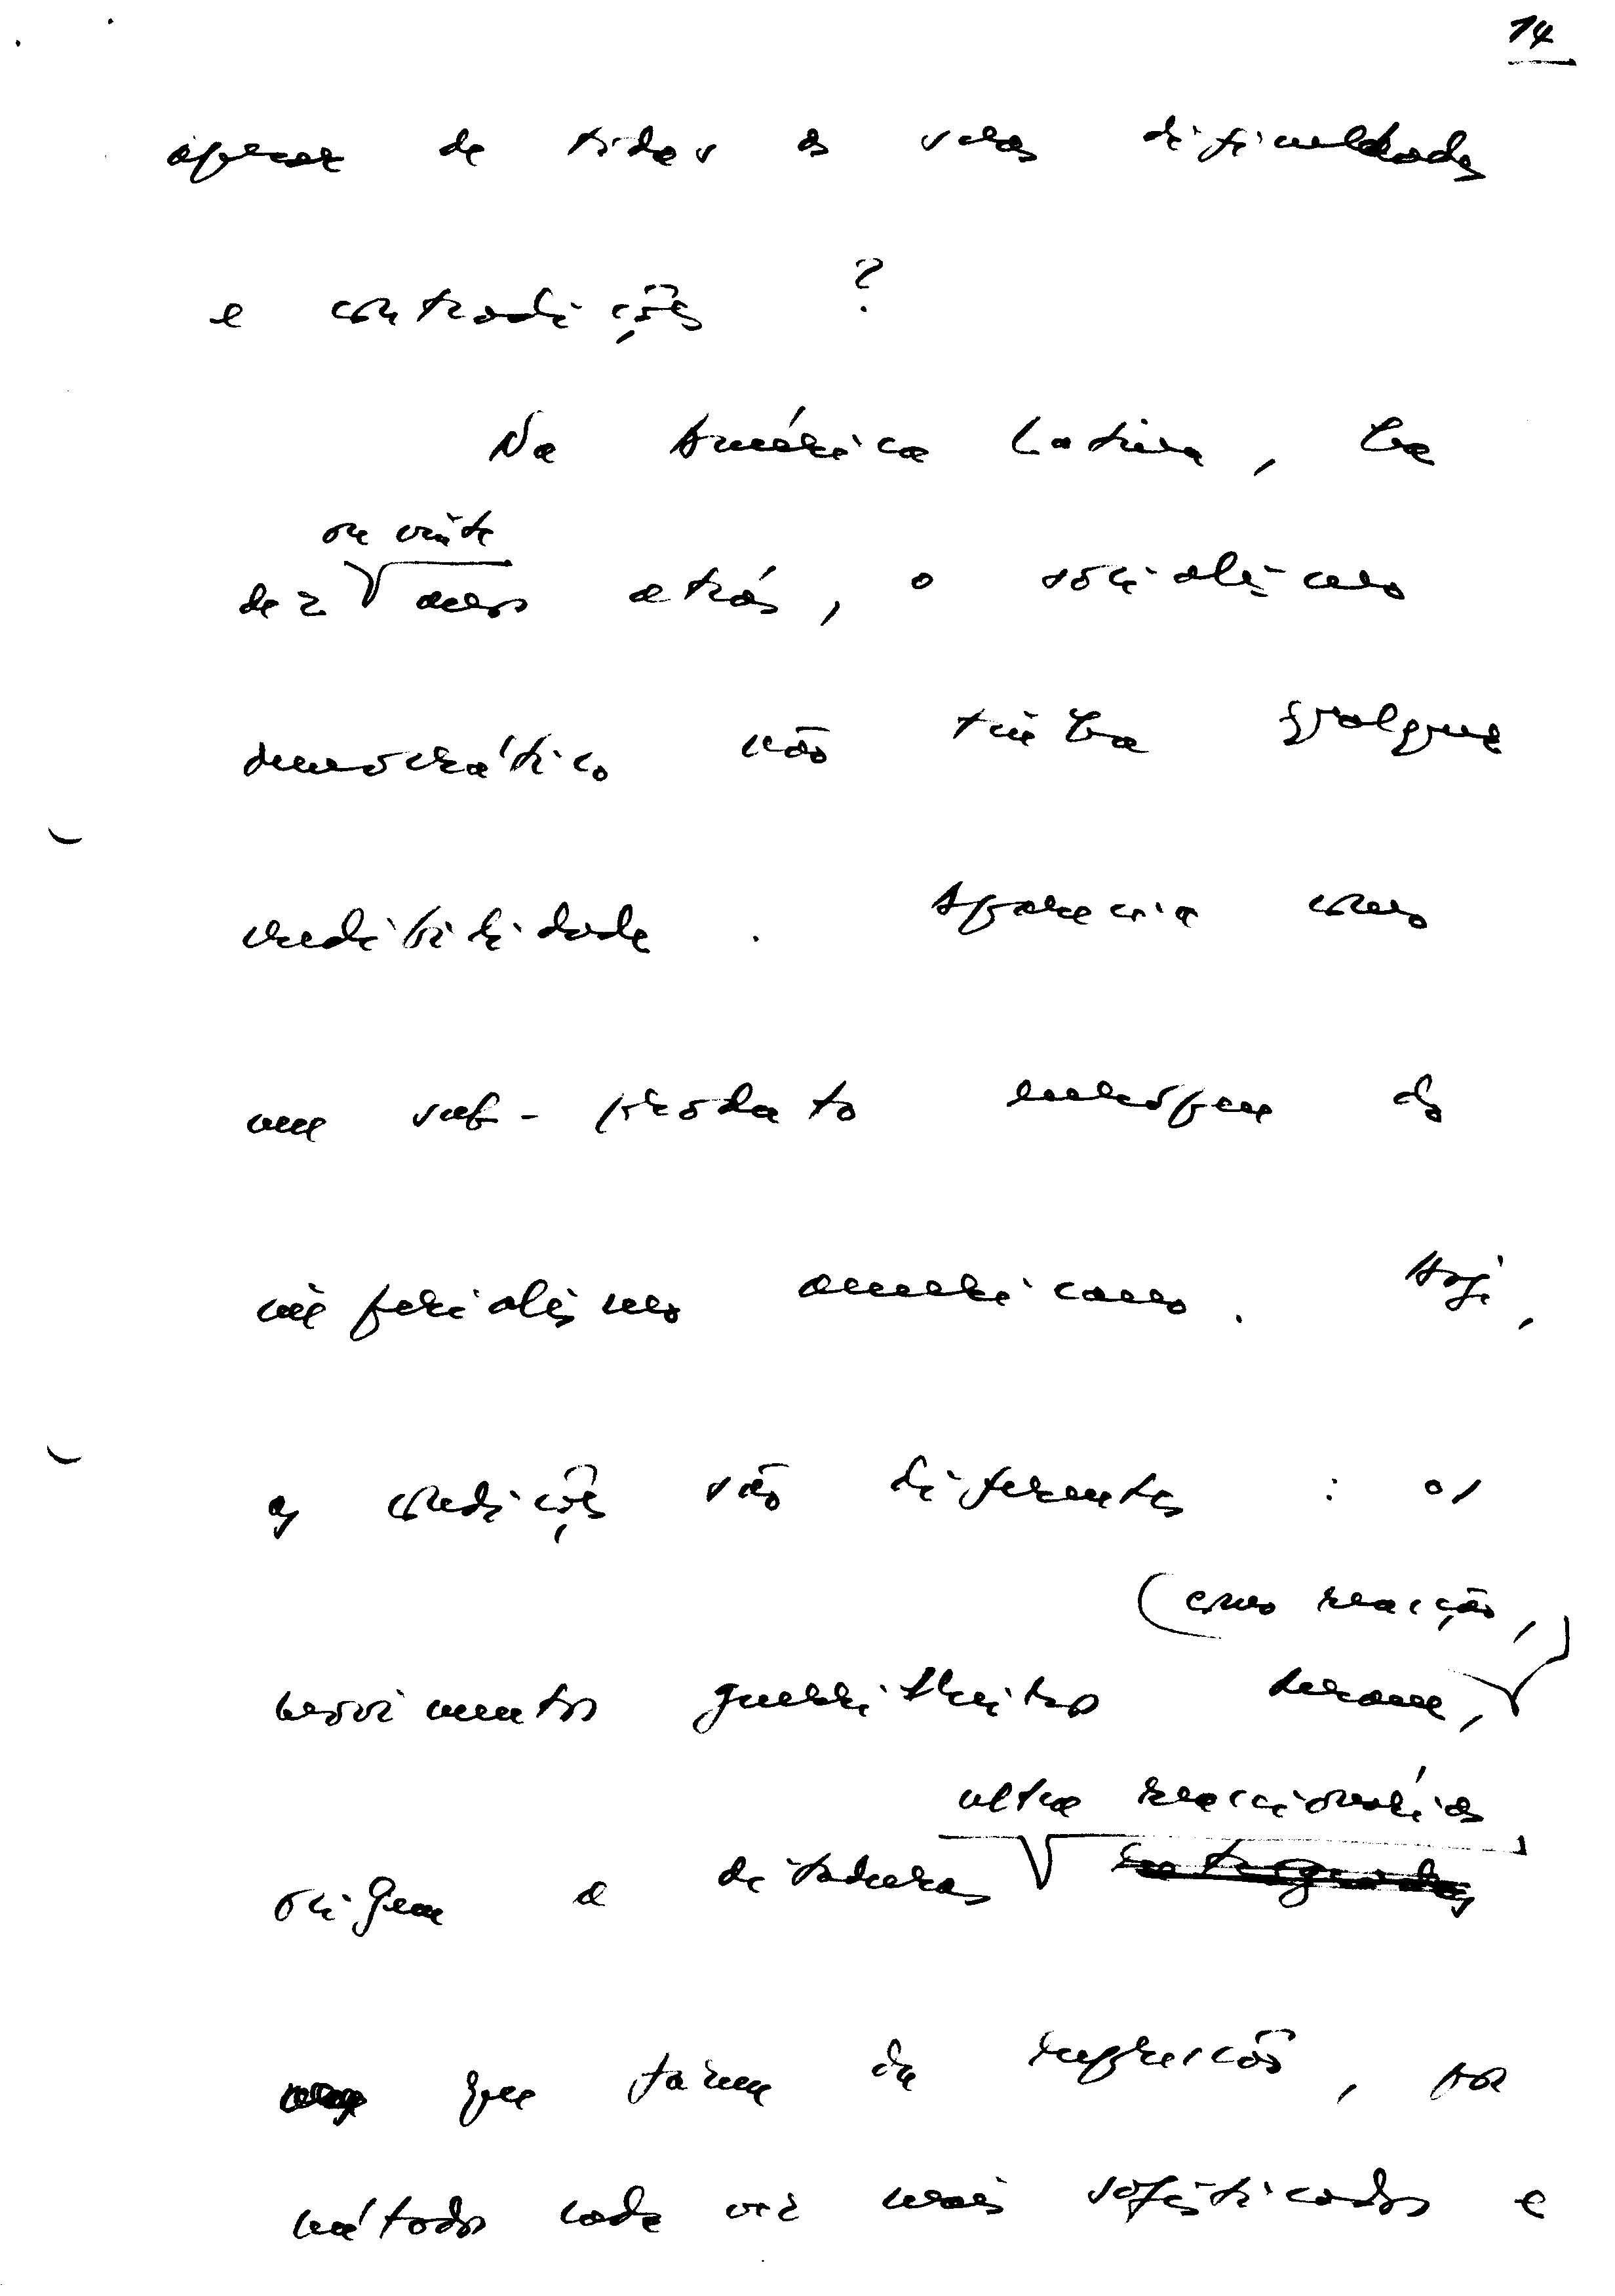 14
apesar de todas as suas dificuldades
e contradições ?
Na América Latina, há
ou vinte
dez anos atrás, o socialismo
democrático não tinha qualquer
credibilidade . Aparecia como
um sub-produto europeu do
imperialismo americano. Hoje,
as condições são diferentes : os
(como reacção,)
movimentos guerrilheiros deram,
ultra reaccionárias
origem a ditaduras
que fazem da repressão, por
métodos cada vez mais sofisticados e